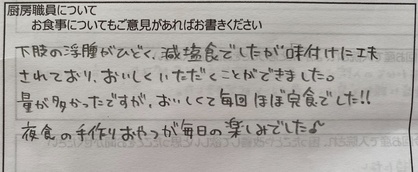 厨房職員について
お食事についてもご意見があればお書きください
下肢の浮腫がひどく、減塩食でしたが味付けに工夫
されており、おいしくいただくことができました。
量が多かったですが、おいしくて毎回ほぼ完食でした!!
夜食の手作りおやつが毎日の楽しみでした♪